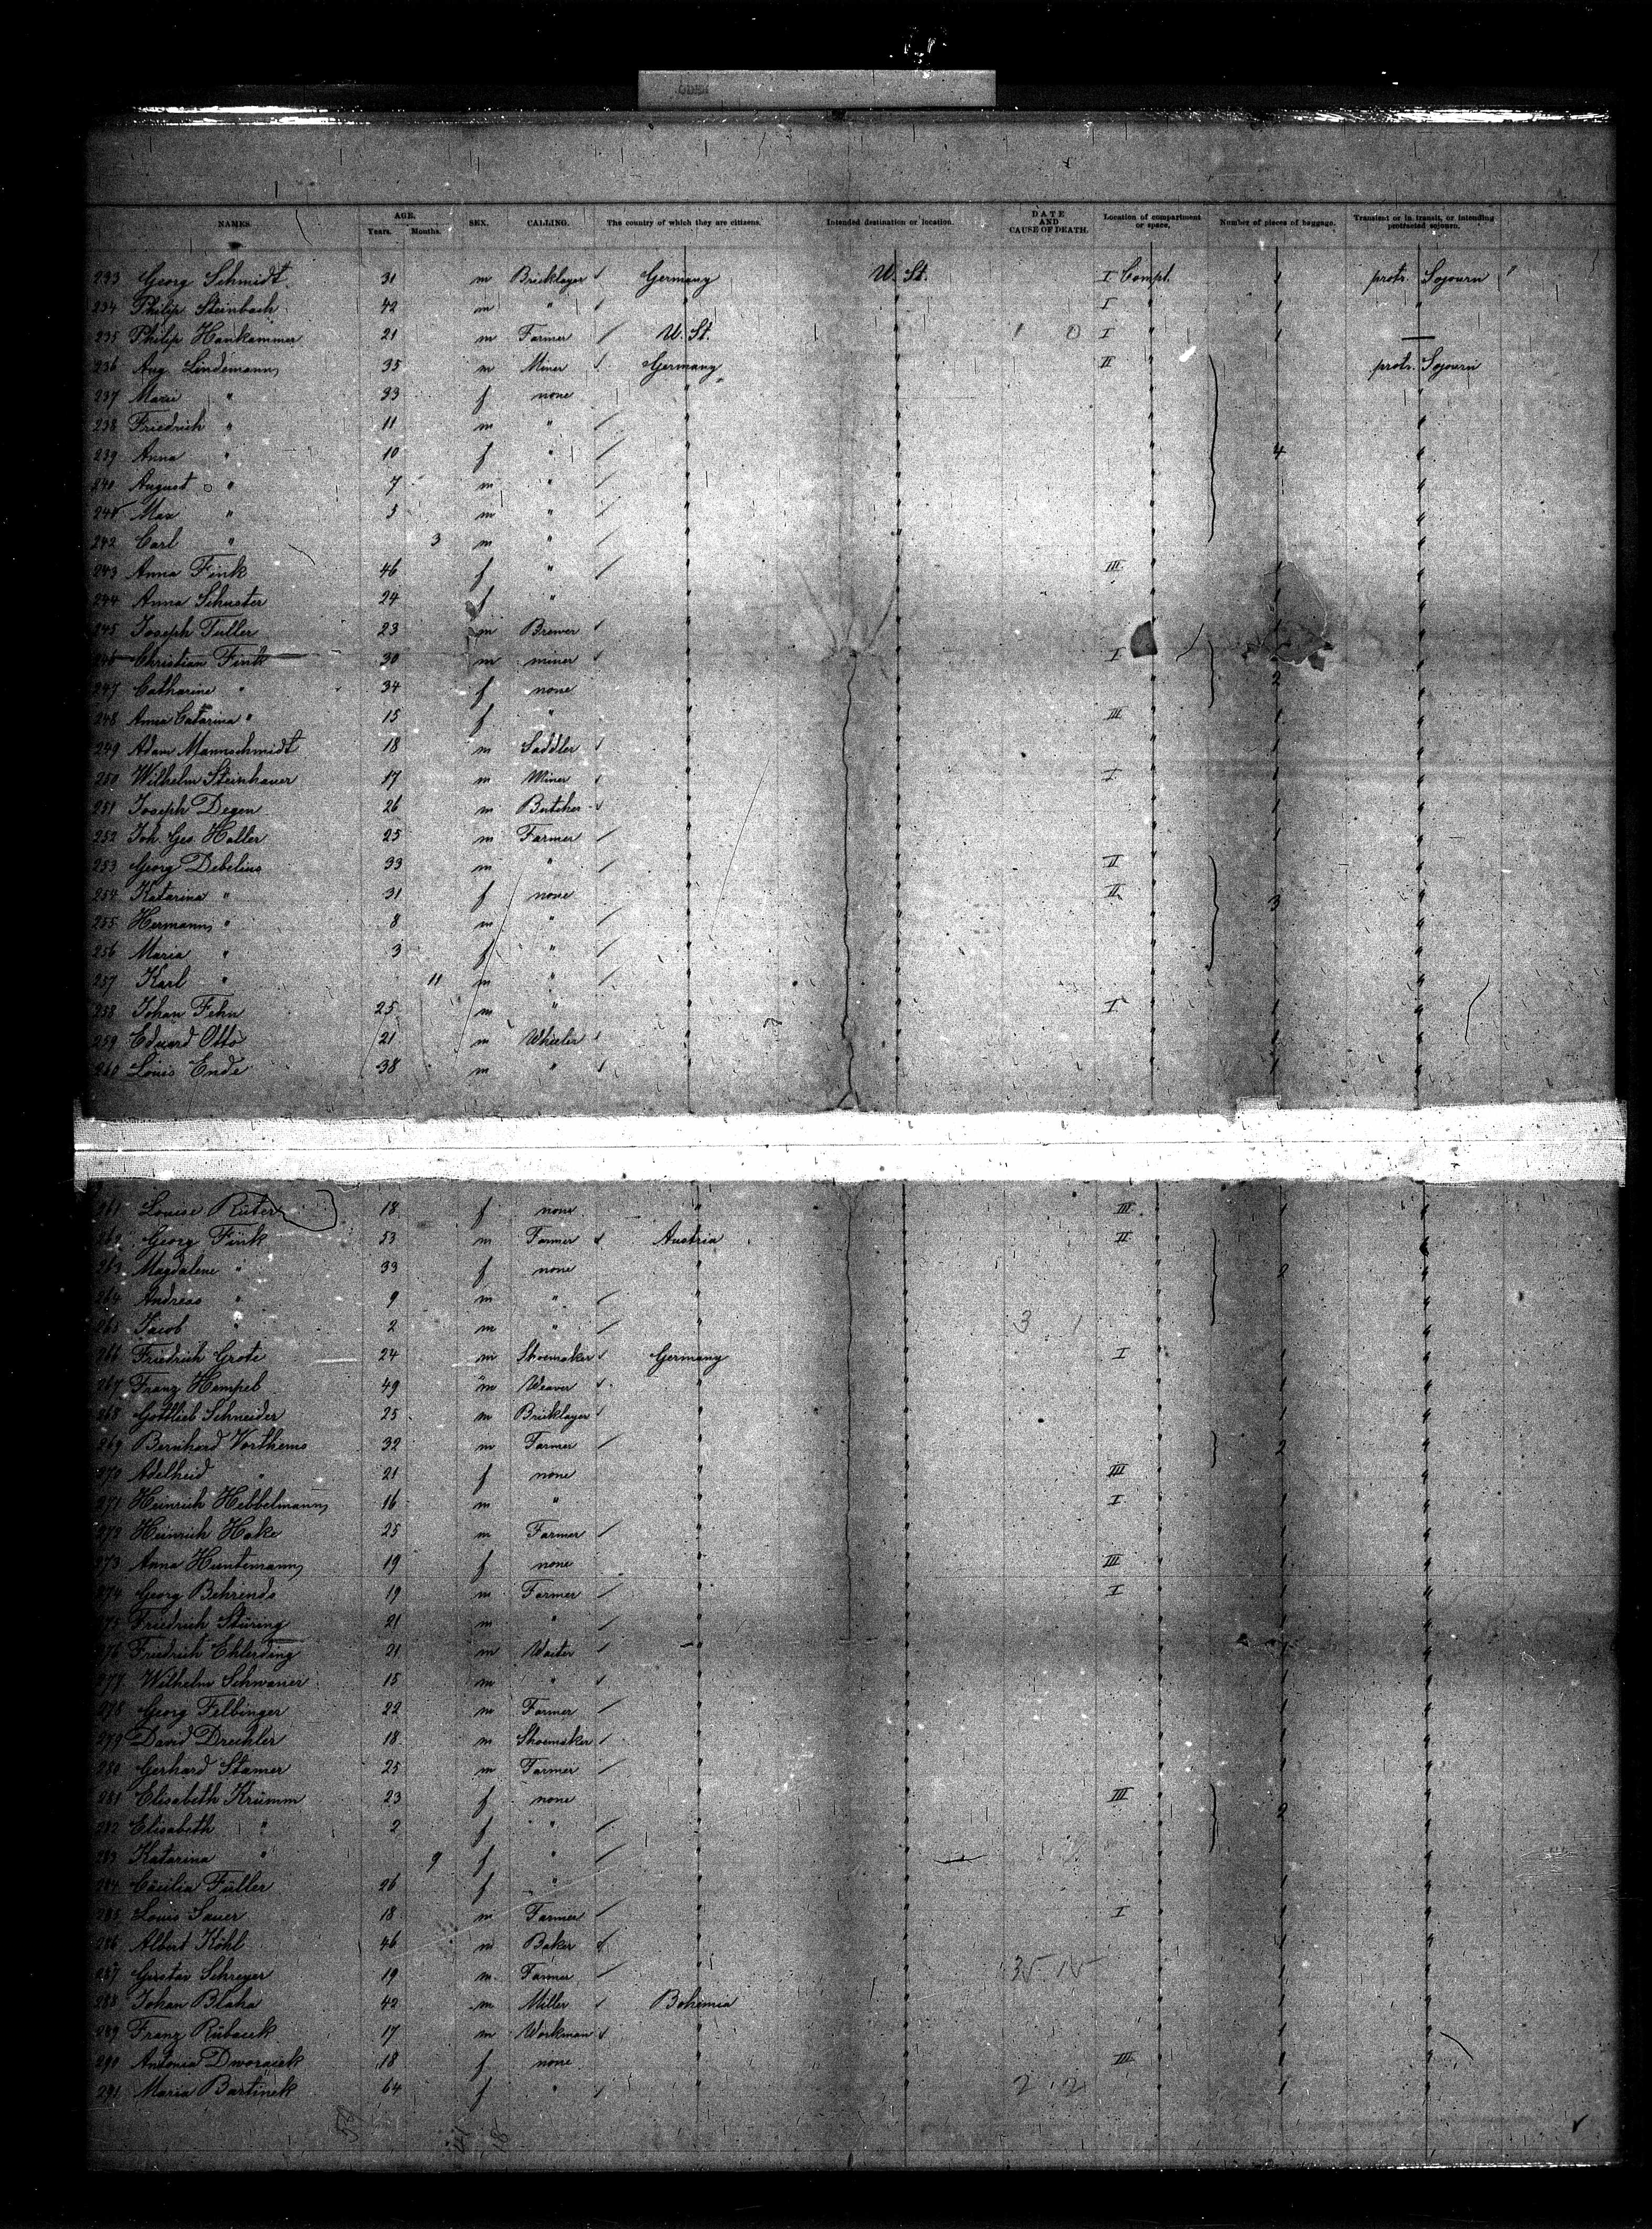 NAMES. AGE. Years. Months. SEX. CALLING. The country of which they are citizens. Intended destination or location. DATE AND CAUSE OF DEATH. Location of compartment or space. Number of pieces of baggage. Transient or in transit, or intending protracted sojourn.
233 Georg Schmidt 31 m Bricklayer Germany U. St. I Compt. 1 protr. Sojourn
234 Philip Steinbach 42 m " " " I " 1 "
235 Philip Hankammer 21 m Farmer U. St. " 1 0 I " 1 —
236 Aug. Lindemann 35 m Miner Germany " II " protr. Sojourn
237 Marie " 33 f none " " " "
238 Friedrich " 11 m " " " " "
239 Anna " 10 f " " " " 4 "
240 August " 7 m " " " " "
241 Max " 5 m " " " " "
242 Carl " 3 m " " " " "
243 Anna Fink 46 f " " " III " 1 "
244 Anna Schuster 24 f " " " " 1 "
245 Joseph Tuller 23 m Brewer " " 1 "
246 Christian Fink 30 m miner " " I " "
247 Catharine " 34 f none " " " 2 "
248 Anna Catarina " 15 f " " " III " 1 "
249 Adam Mannschmidt 18 m Saddler " " " 1 "
250 Wilhelm Steinhauer 17 m Miner " " I " 1 "
251 Joseph Degen 26 m Butcher " " " 1 "
252 Joh. Geo. Haller 25 m Farmer " " " 1 "
253 Georg Debelius 33 m " " " II " "
254 Katarina " 31 f none " " II " 3 "
255 Hermann " 8 m " " " " "
256 Maria " 3 f " " " " "
257 Karl " 11 m " " " " "
258 Johan Fehn 25 m " " " I " 1 "
259 Eduard Otto 21 m Wheeler " " " 1 "
260 Louis Ende 38 m " " " " 1 "
261 Louise Rüter 18 f none " " III " 1 "
262 Georg Fink 53 m Farmer Austria " II " "
263 Magdalene " 33 f none " " " 2 "
264 Andreas " 9 m " " " " "
265 Jacob " 2 m " " " 3 1 " "
266 Friedrich Grote 24 m Shoemaker Germany " I " 1 "
267 Franz Hempel 49 m Weaver " " " 1 "
268 Gottlieb Schneider 25 m Bricklayer " " " 1 "
269 Bernhard Vorthems 32 m Farmer " " " 2 "
270 Adelheid " 21 f none " " III " "
271 Heinrich Hebbelmann 16 m " " " I " 1 "
272 Heinrich Hake 25 m Farmer " " " 1 "
273 Anna Huntemann 19 f none " " III " 1 "
274 Georg Behrends 19 m Farmer " " I " 1 "
275 Friedrich Stüring 21 m " " " " 1 "
276 Friedrich Ehlerding 21 m Waiter " " " 1 "
277 Wilhelm Schwaner 15 m " " " " 1 "
278 Georg Felbinger 22 m Farmer " " " 1 "
279 David Drechler 18 m Shoemaker " " " 1 "
280 Gerhard Stamer 25 m Farmer " " " 1 "
281 Elisabeth Krümm 23 f none " " III " 2 "
282 Elisabeth " 2 f " " " " "
283 Katarina " 9 f " " " " "
284 Cäcilia Füller 26 f " " " " 1 "
285 Louis Sauer 18 m Farmer " " I " 1 "
286 Albert Köhl 46 m Baker " " " 1 "
287 Gustav Schreyer 19 m Farmer " " " 1 "
288 Johan Blaha 42 m Miller Bohemia " " 1 "
289 Franz Rübacek 17 m Workman " " " 1 "
290 Antonia Dworacek 18 f none " " III " 1 "
291 Maria Bartinek 64 f " " " 2 2 " 1 "